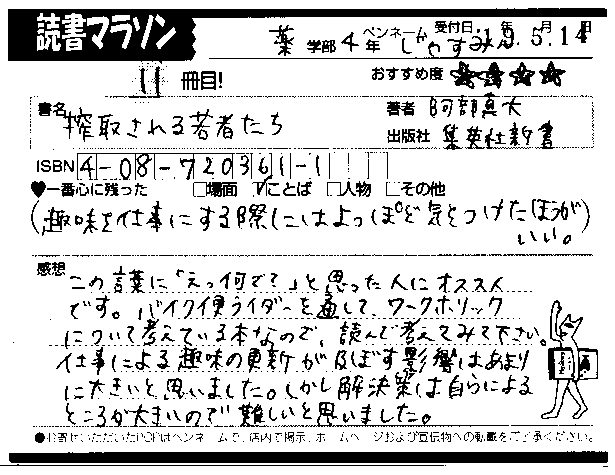 読書マラソン
薬 学部 4 年 ペンネーム しゃすみん 受付日 19年 5月 14日
11 冊目!
おすすめ度 ★★★☆
書名 搾取される若者たち
著者 阿部真大
出版社 集英社新書
ISBN 4-08-720361-1
♥一番心に残った □場面 ☑ことば □人物 □その他
(趣味を仕事にする際にはよっぽど気をつけたほうが
いい。)
感想
この言葉に「えっ何で?」と思った人にオススメ
です。バイク便ライダーを通して、ワークホリック
について考えている本なので、読んで考えてみて下さい。
仕事による趣味の更新が及ぼす影響はあまり
に大きいと思いました。しかし解決策は自らによる
ところが大きいので難しいと思いました。
●お寄せいただいたPOPはペンネームで、店内で掲示、ホームページおよび宣伝物への転載をご了承ください。